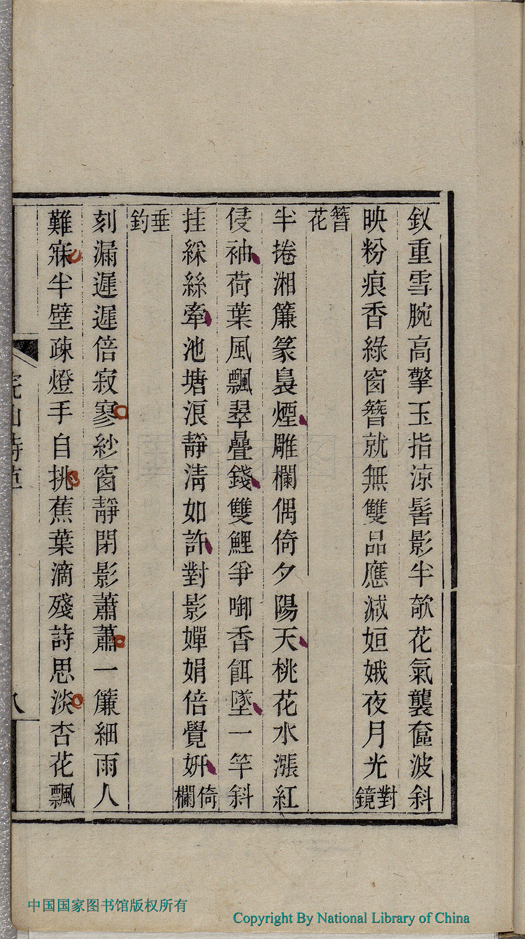 釵重雪腕高擎玉指涼髻影半欹花氣襲奩波斜
映粉痕香綠窗簪就無雙品應減姮娥夜月光對鏡
簪花
半捲湘簾篆裊煙雕欄偶倚夕陽天桃花水漲紅
侵袖荷葉風飄翠疊錢雙鯉爭啣香餌墜一竿斜
挂綵絲牽池塘浪靜淸如許對影嬋娟倍覺姸倚欄
垂釣
刻漏遲遲倍寂寥紗窗靜閉影蕭蕭一簾細雨人
難寐半壁疎燈手自挑蕉葉滴殘詩思淡杏花飄
八
中国国家图书馆版权所有
Copyright By National Library of China